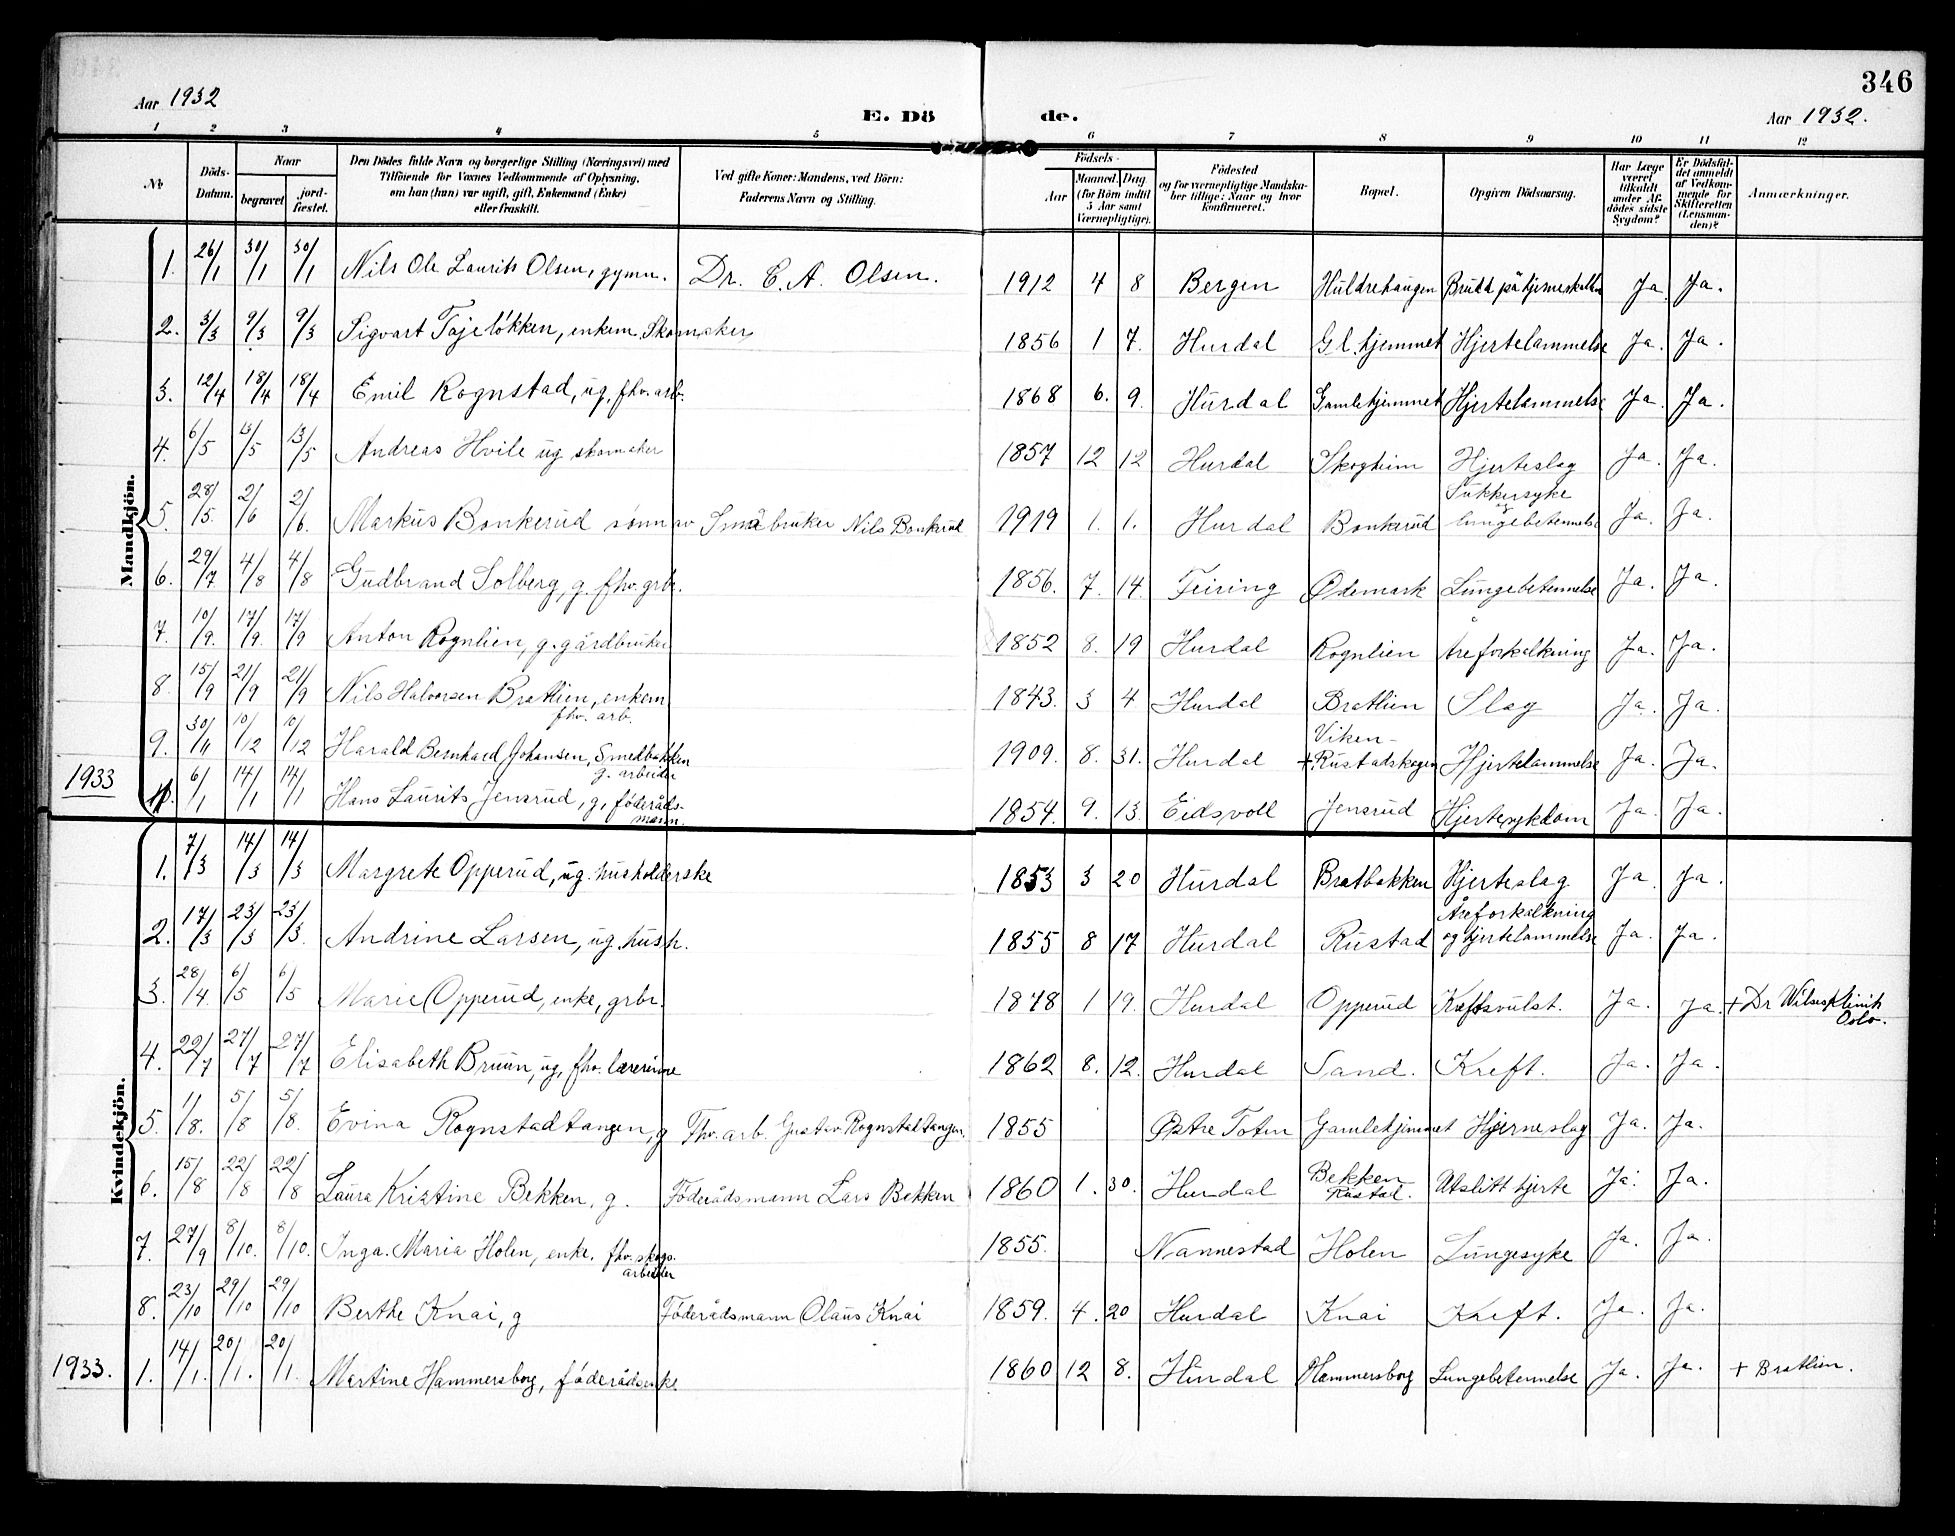 346
Aar 1932
E. Dö de.
Aar 1932.
1 2 3 4 5 6 7 8 9 10 11 12
No
Döds-Datum.
Naar
begravet
jordfæstet.
Den Dödes fulde Navn og borgerlige Stilling (Næringsvei) med
Tilföiende for Voxnes Vedkommende af Oplysning,
om han (hun) var ugift, gift, Enkemand (Enke)
eller fraskilt.
Ved gifte Koner: Mandens, ved Börn:
Faderens Navn og Stilling.
Födsels-
Aar
Maaned. Dag
(for Börn indtil
5 Aar samt
Værnepligtige).
Födested
og for værnepligtige Mandska-
ber tillige: Naar og hvor
konfirmeret.
Bopæl.
Opgiven Dödsaarsag.
Har Læge
været
tilkaldt
under Af-
dödes sidste
Sygdom?
Er Dödsfal-
det anmeldt
af Vedkom-
mende for
Skifteretten
(Lensman-
den)?
Anmærkninger.
Mandkjön.
1. 26/1 30/1 30/1 Nils Ole Laurits Olsen, gymn. Dr. C. A. Olsen. 1912 4 8 Bergen Huldrehaugen Brudd på hjerneskallen Ja. Ja.
2. 3/3 9/3 9/3 Sigvart Tøjeløkken, enkem. Skomaker 1856 1 7. Hurdal Gl.hjemmet Hjertelammelse Ja. Ja.
3. 12/4 18/4 18/4 Emil Rognstad, ug, fhv. arb. 1868 6. 9. Hurdal Gamlehjemmet Hjertelammelse Ja. Ja.
4. 6/5 13/5 13/5 Andreas Hvile ug skomaker 1857 12 12 Hurdal Skogheim Hjerteslag Ja. Ja.
5. 28/5. 2/6 2/6. Markus Bonkerud sønn av Småbruker Nils Bonkerud 1919 1. 1. Hurdal Bonkerud Sukkersyke og lungebetennelse Ja. Ja.
6. 29/7 4/8 4/8 Gudbrand Solberg, g. fhv. grbr. 1856. 7. 14. Feiring Ødemark Lungebetennelse Ja. Ja.
7. 10/9. 17/9. 17/9 Anton Rognlien, g. gårdbruker 1852 8. 19 Hurdal Rognlien Åreforkalkning Ja. Ja.
8. 15/9 21/9 21/9 Nils Halvorsen Bratlien, enkem
fhv. arb. 1843. 3 4 Hurdal Bratlien Slag Ja. Ja.
9. 30/11 10/12 10/12 Harald Bernhard Johansen, Smedbakken
g. arbeider 1909. 8. 31. Hurdal Viken- + Rustadskogen Hjertelammelse Ja. Ja.
1933
1. 6/1 14/1 14/1 Hans Laurits Jensrud, g, føderåds-
mann. 1854. 9. 13. Eidsvoll Jensrud Hjertesykdom Ja. Ja.
Kvindekjön.
1. 7/3 14/3 14/3 Margrete Opperud, ug. husholderske 1853 3 20 Hurdal Bratbakken Hjerteslag Ja. Ja.
2. 17/3 23/3 23/3. Andrine Larsen, ug. hush. 1855 8 17 Hurdal Rustad Åreforkalkning og hjertelammelse Ja. Ja.
3. 28/4. 6/5 6/5 Marie Opperud, enke, grbr. 1848 1 19. Hurdal Opperud Kreftsvulst. Ja. Ja. + Dr Wilses Klinik
Oslo.
4. 22/7 27/7 27/7 Elisabeth Bruun, ug, fhv. lærerinne 1862 8. 12. Hurdal Sand. Kreft. Ja. Ja.
5. 1/8. 5/8 5/8. Evina Rognstadtangen, g Fhv. arb. Gustav Rognstadtangen. 1855 Østre Toten Gamlehjemmet Hjerneslag Ja. Ja.
6. 15/8 22/8 22/8 Laura Kristine Bekken, g. Føderådsmann Lars Bekken 1860 1. 30. Hurdal Bekken Rustad. Utslitt hjerte Ja. Ja.
7. 27/9 8/10. 8/10. Inga. Maria Holen, enke. fhv. skogs-
arbeider 1855. Nannestad Holen Lungesyke Ja. Ja.
8. 23/10 29/10 29/10 Berthe Knai, g Føderådsmann Olaus Knai 1859. 4. 20 Hurdal Knai Kreft. Ja. Ja.
1933.
1. 14/1. 20/1. 20/1. Martine Hammersborg, føderådsenke 1860 12 8. Hurdal Hammersborg Lungebetennelse Ja. Ja. + Bratlien.